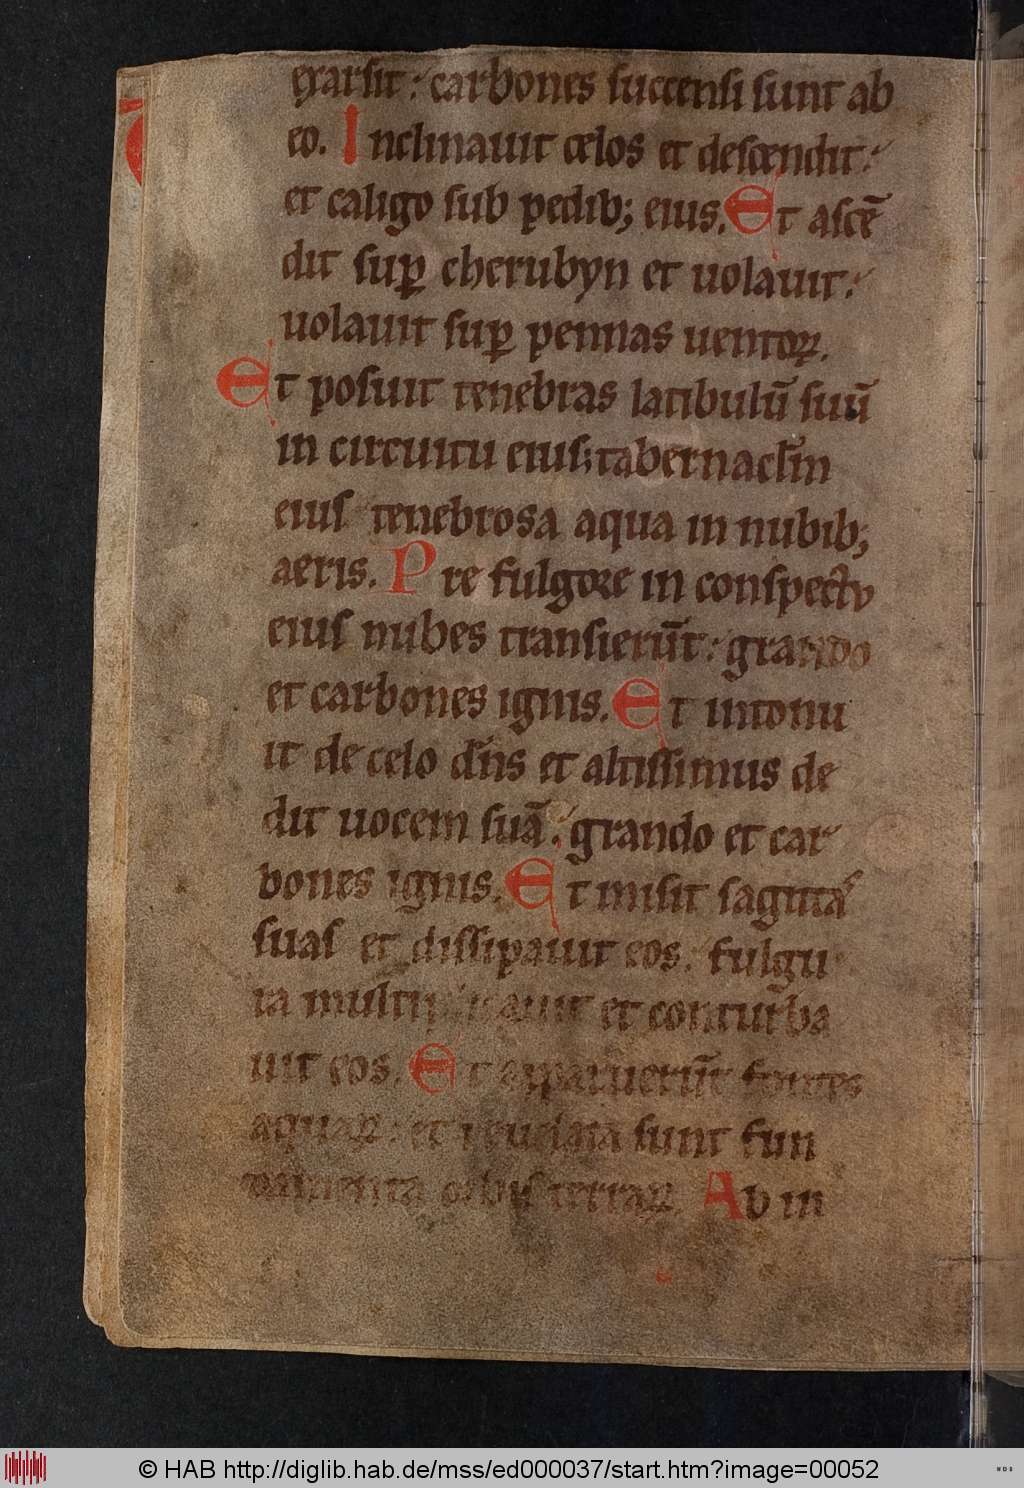 exarsit: carbones succensi sunt ab
eo. Inclinauit celos et descendit:
et caligo sub pedib; eius. Et ascē
dit suꝑ cherubyn et uolauit:
uolauit suꝑ pennas uentoꝝ.
Et posuit tenebras latibulū suū
in circuitu eius; tabernacl̄m
eius tenebrosa aqua in nubib;
aeris. Pre fulgore in conspectu
eius nubes transierūt: grando
et carbones ignis. Et intonu
it de celo dn̄s et altissimus de
dit uocem suā: grando et car
bones ignis. Et misit sagittas
suas et dissipauit eos. fulgu
ra multiplicauit et conturba
uit eos. Et apparuerūt fontes
aquaꝝ: et reuelata sunt fun
damenta orbis terraꝝ. Ab in
© HAB http://diglib.hab.de/mss/ed000037/start.htm?image=00052